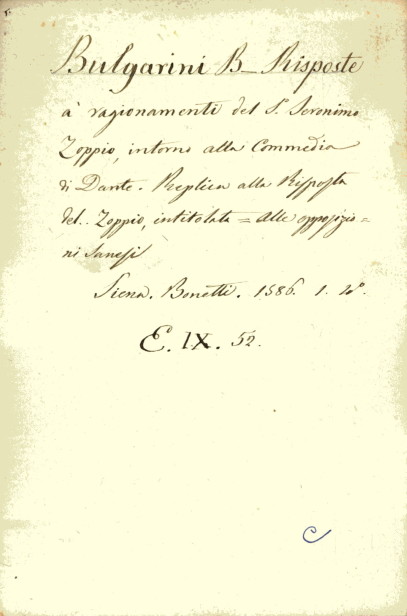 Bulgarini B_ Risposte
a' ragionamenti del S. Jeronimo
Zoppio, intorno alla Commedia
di Dante. Replica alla Risposta
del. Zoppio, intitolata = alle opposizio=
ni Sanesi
Siena. Bonetti. 1586. 1. 4°.
E. IX. 52.
C